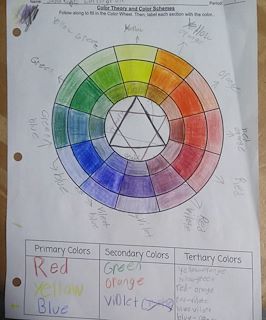 Name:
Period
Color Theory and Color Schemes
Follow along to fill in the Color Wheel. Then, label each section with the color.
Yellow
Yellow Green
Yellow
orange
Green
orange
Red
orange
Blue
Blue
Red
Violet
Violet
Red
Violet
Primary Colors Secondary Colors Tertiary Colors
Red Green Yellow-orange
Yellow orange yellow-green
Blue Violet red-orange
red-violet
blue-violet
blue-green